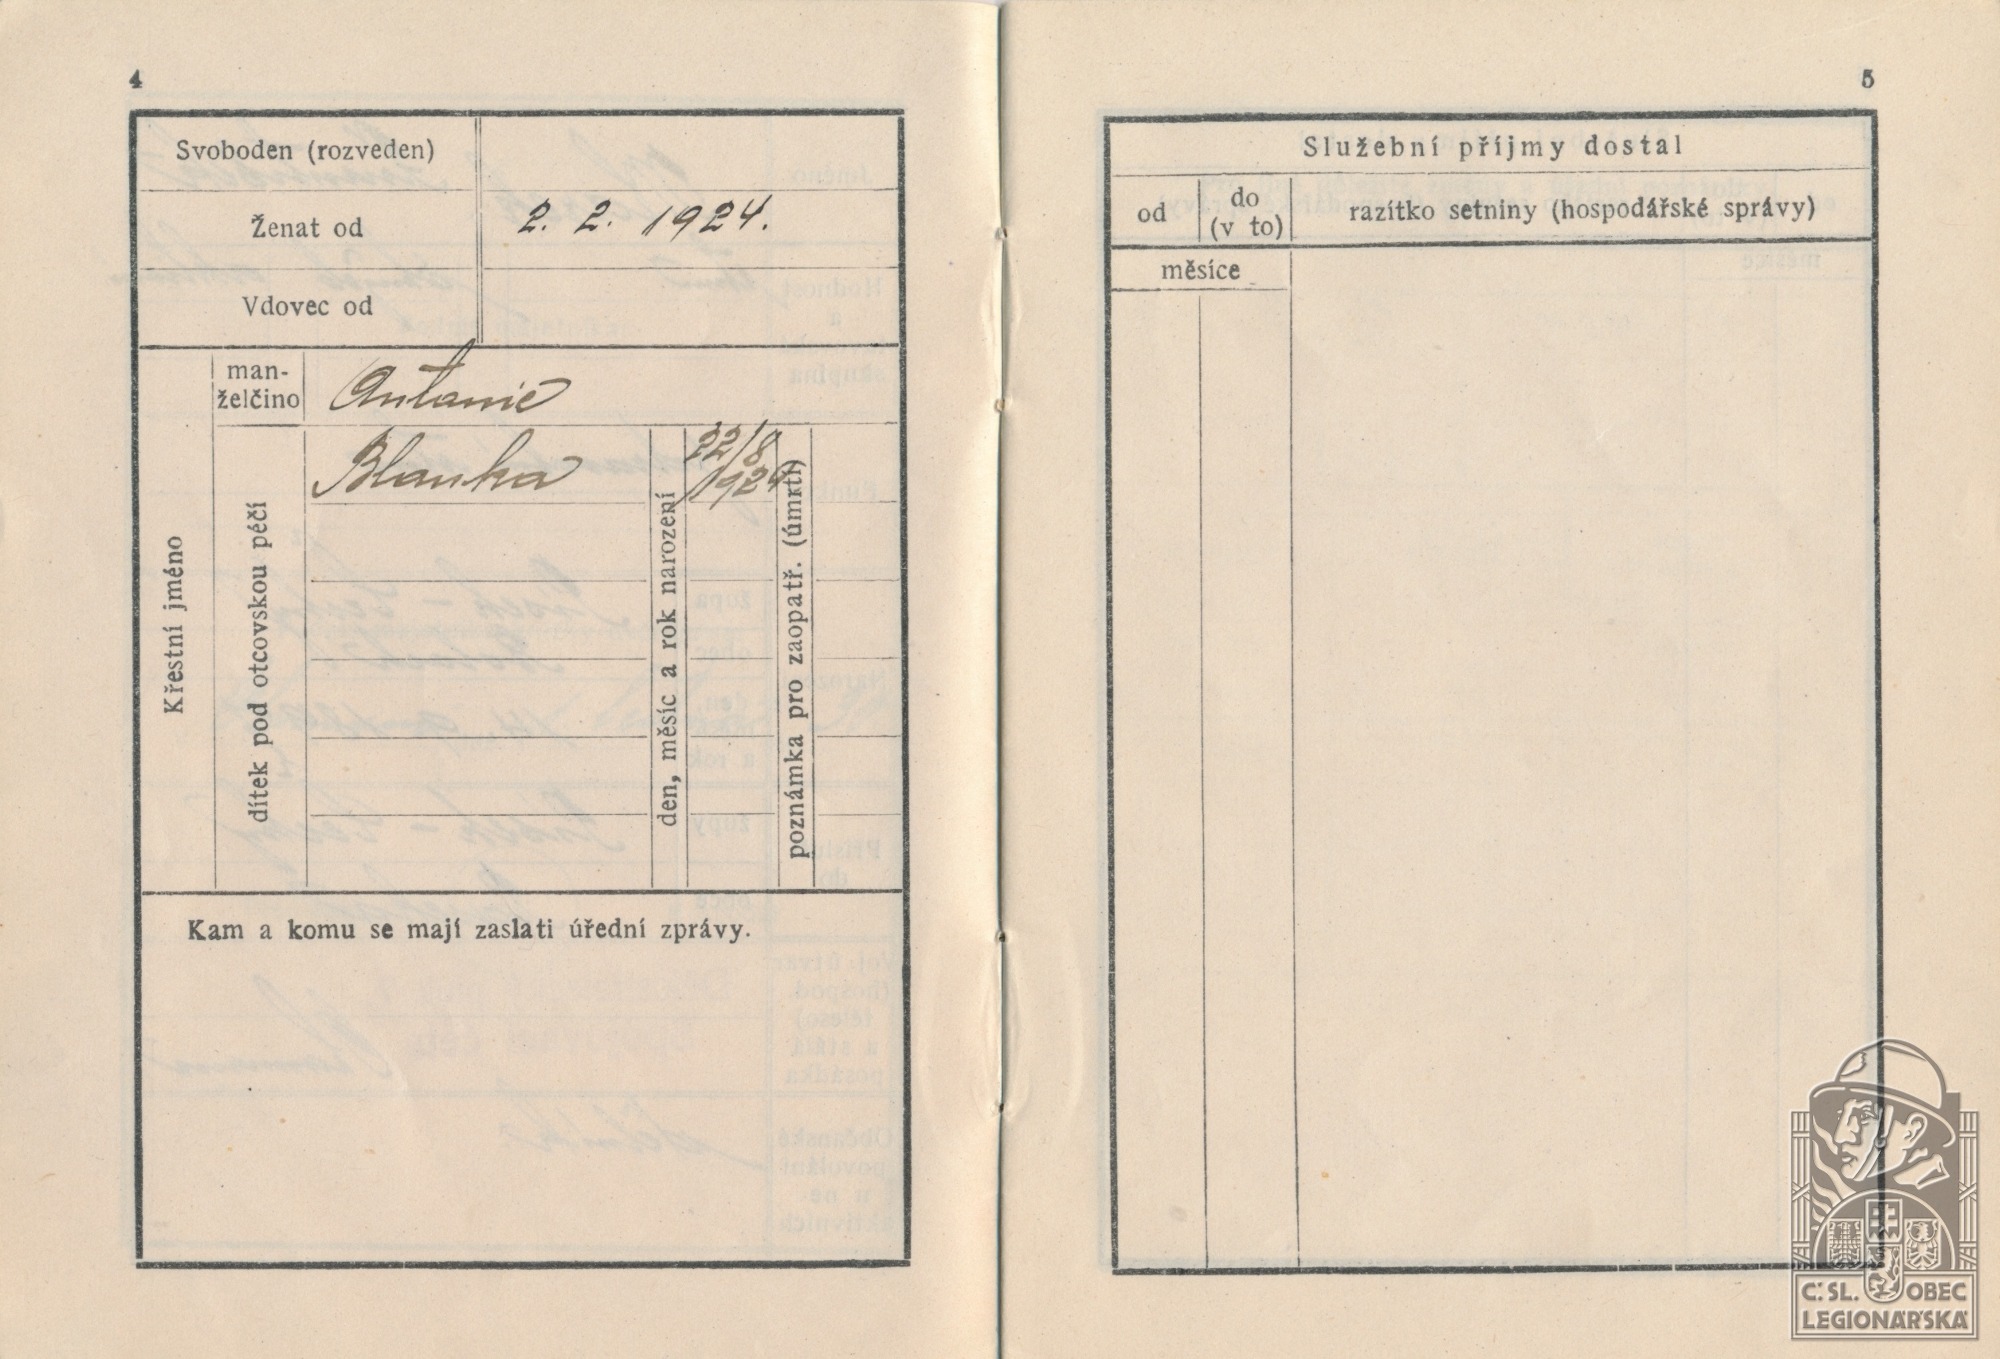 4
Svoboden (rozveden)
Ženat od
2. 2. 1924.
Vdovec od
Křestní jméno
man-
želčino
Antonie
dítek pod otcovskou péčí
Blanka
den, měsíc a rok narození
22/8
poznámka pro zaopatř. (úmrtí)
Kam a komu se mají zaslati úřední zprávy.
5
Služební příjmy dostal
od
do
(v to)
razítko setniny (hospodářské správy)
měsíce
Č.SL. OBEC
LEGIONÁŘSKÁ